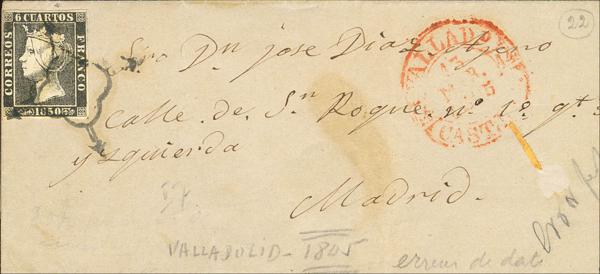 6 CUARTOS
CORREOS
FRANCO
1850
22
Sr. Dn. jose Diaz Agero
VALLADOLID
13
MAR
CAST
calle de Sn Roque nº 1º qt
y yzquierda
Madrid.
57
VALLADOLID - 1805
erreur de date